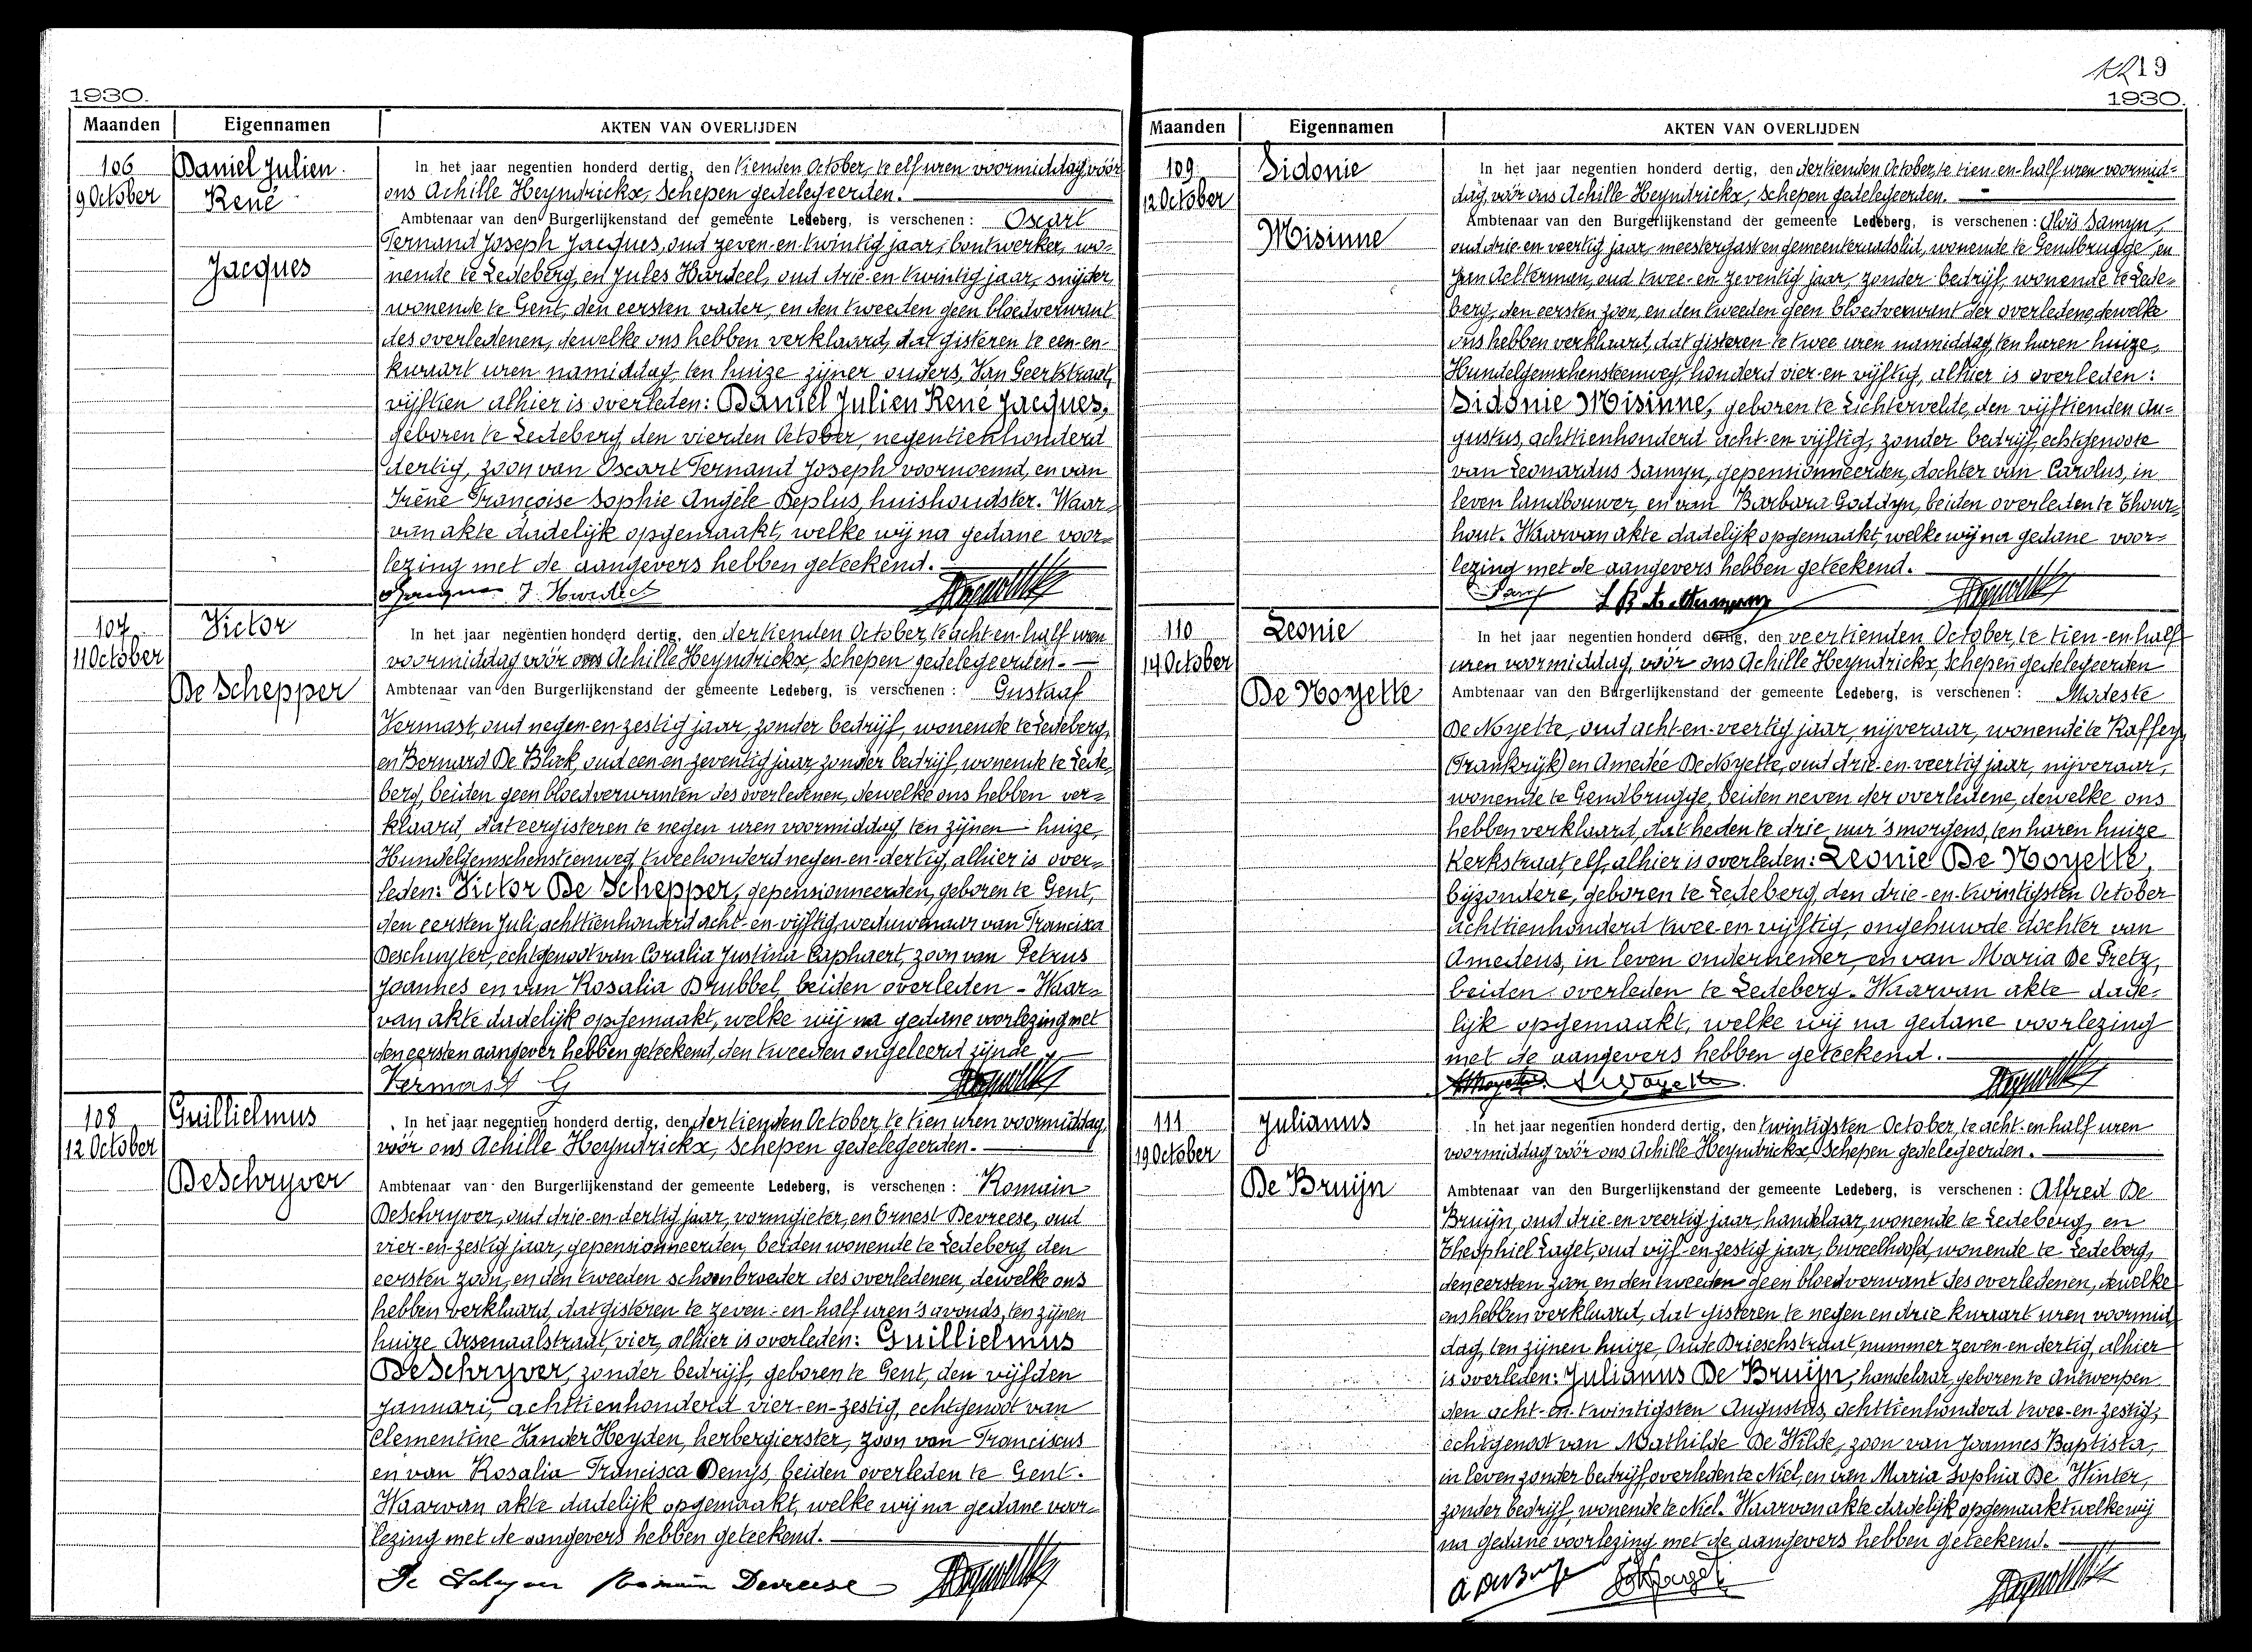 1930.
Maanden Eigennamen AKTEN VAN OVERLIJDEN
106
9 October
Daniel Julien
René
Jacques
In het jaar negentien honderd dertig, den tienden October, te elf uren voormiddag, vóór
ons Achille Heyndrickx, Schepen gedelegeerden.
Ambtenaar van den Burgerlijkenstand der gemeente Ledeberg, is verschenen: Oscart
Fernand Joseph Jacques, oud zeven-en-twintig jaar, bontwerker, wo=
nende te Ledeberg, en Jules Hardeel, oud drie-en-twintig jaar, snijder,
wonende te Gent, den eersten vader, en den tweeden geen bloedverwant
des overledenen, dewelke ons hebben verklaard, dat gisteren te een-en-
kwaart uren namiddag, ten huize zijner ouders, Van Geertstraat,
vijftien alhier is overleden: Daniel Julien René Jacques,
geboren te Ledeberg den vierden October, negentienhonderd
dertig, zoon van Oscart Fernand Joseph voornoemd, en van
Irène Françoise Sophie Angèle Deplus, huishoudster. Waar=
van akte dadelijk opgemaakt, welke wij na gedane voor=
lezing met de aangevers hebben geteekend.
107
11 October
Victor
De Schepper
In het jaar negentien honderd dertig, den dertienden October, te acht-en-half uren
voormiddag vóór ons Achille Heyndrickx, Schepen gedelegeerden.
Ambtenaar van den Burgerlijkenstand der gemeente Ledeberg, is verschenen: Gustaaf
Vermast, oud negen-en-zestig jaar, zonder bedrijf, wonende te Ledeberg,
en Bernard De Block, oud een en zeventig jaar, zonder bedrijf, wonende te Lede=
berg, beiden geen bloedverwanten des overledenen, dewelke ons hebben ver=
klaard, dat eergisteren te negen uren voormiddag, ten zijnen huize,
Hundelgemschensteenweg, tweehonderd negen-en-dertig, alhier is over=
leden: Victor De Schepper, gepensionneerden, geboren te Gent,
den eersten Juli, achttienhonderd acht-en-vijftig, weduwenaar van Francisca
Deschuyter, echtgenoot van Coralia Justina Caphaert, zoon van Petrus
Joannes en van Rosalia Brubbel, beiden overleden - Waar=
van akte dadelijk opgemaakt, welke wij na gedane voorlezing met
den eersten aangever hebben geteekend, den tweeden ongeleerd zijnde.
Vermast G
108
12 October
Guillielmus
DeSchryver
In het jaar negentien honderd dertig, den dertienden October, te tien uren voormiddag,
vóór ons Achille Heyndrickx, Schepen gedelegeerden.
Ambtenaar van den Burgerlijkenstand der gemeente Ledeberg, is verschenen: Romain
DeSchryver, oud drie-en-dertig jaar, vormgieter, en Ernest Devreese, oud
vier-en-zestig jaar, gepensionneerden, beiden wonende te Ledeberg, den
eersten zoon, en den tweeden schoonbroeder des overledenen, dewelke ons
hebben verklaard, dat gisteren te zeven-en-half uren 's avonds, ten zijnen
huize Arsenaalstraat, vier, alhier is overleden: Guillielmus
DeSchryver, zonder bedrijf, geboren te Gent, den vijfden
Januari, achttienhonderd vier-en-zestig, echtgenoot van
Clementine Vander Heyden, herbergierster, zoon van Franciscus
en van Rosalia Francisca Denijs, beiden overleden te Gent.
Waarvan akte dadelijk opgemaakt, welke wij na gedane voor=
lezing met de aangevers hebben geteekend.
De Schryver Romain Devreese
19
1930.
Maanden Eigennamen AKTEN VAN OVERLIJDEN
109
12 October
Sidonie
Misinne
In het jaar negentien honderd dertig, den dertienden October, te tien-en-half uren voormid=
dag, vóór ons Achille Heyndrickx, Schepen gedelegeerden.
Ambtenaar van den Burgerlijkenstand der gemeente Ledeberg, is verschenen: Aloïs Samyn,
oud drie-en-veertig jaar, meestergast en gemeenteraadslid, wonende te Gendbrugge, en
Jan Aelterman, oud twee-en-zeventig jaar, zonder bedrijf, wonende te Lede=
berg, den eersten zoon, en den tweeden geen bloedverwant der overledene, dewelke
ons hebben verklaard, dat gisteren te twee uren namiddag, ten haren huize,
Hundelgemschensteenweg, honderd vier-en-vijftig, alhier is overleden:
Sidonie Misinne, geboren te Lichtervelde, den vijftienden Au=
gustus, achttienhonderd acht-en-vijftig, zonder bedrijf, echtgenoote
van Leonardus Samyn, gepensionneerden, dochter van Carolus, in
leven landbouwer, en van Barbara Goddyn, beiden overleden te Thour=
hout. Waarvan akte dadelijk opgemaakt, welke wij na gedane voor=
lezing met de aangevers hebben geteekend.
110
14 October
Leonie
De Noyette
In het jaar negentien honderd dertig, den veertienden October, te tien-en-half
uren voormiddag, vóór ons Achille Heyndrickx, Schepen gedelegeerden
Ambtenaar van den Burgerlijkenstand der gemeente Ledeberg, is verschenen: Modeste
De Noyette, oud acht-en-veertig jaar, nijveraar, wonende te Raffey
(Frankrijk) en Amedée De Noyette, oud drie-en-veertig jaar, nijveraar,
wonende te Gendbrugge, beiden neven der overledene, dewelke ons
hebben verklaard, dat heden te drie uur 's morgens, ten haren huize
Kerkstraat, elf, alhier is overleden: Leonie De Noyette,
byzondere, geboren te Ledeberg, den drie-en-twintigsten October
achttienhonderd twee-en-vijftig, ongehuwde dochter van
Amedeus, in leven ondernemer, en van Maria De Pretz,
beiden overleden te Ledeberg. Waarvan akte dade=
lijk opgemaakt, welke wij na gedane voorlezing
met de aangevers hebben geteekend.
111
19 October
Julianus
De Bruijn
In het jaar negentien honderd dertig, den twintigsten October, te acht-en-half uren
voormiddag vóór ons Achille Heyndrickx, Schepen gedelegeerden.
Ambtenaar van den Burgerlijkenstand der gemeente Ledeberg, is verschenen: Alfred De
Bruijn, oud drie-en-veertig jaar, handelaar, wonende te Ledeberg, en
Theophiel Laget, oud vijf-en-zestig jaar, bureelhoofd, wonende te Ledeberg,
den eersten zoon, en den tweeden geen bloedverwant des overledenen, dewelke
ons hebben verklaard, dat gisteren te negen en drie kwaart uren voormid=
dag, ten zijnen huize, Oude Drieschstraat, nummer zeven-en-dertig, alhier
is overleden: Julianus De Bruijn, handelaar, geboren te Antwerpen
den acht-en-twintigsten Augustus, achttienhonderd twee-en-zestig,
echtgenoot van Mathilde De Wilde, zoon van Joannes Baptista,
in leven zonder bedrijf, overleden te Niel, en van Maria Sophia De Winter,
zonder bedrijf, wonende te Niel. Waarvan akte dadelijk opgemaakt welke wij
na gedane voorlezing met de aangevers hebben geteekend.